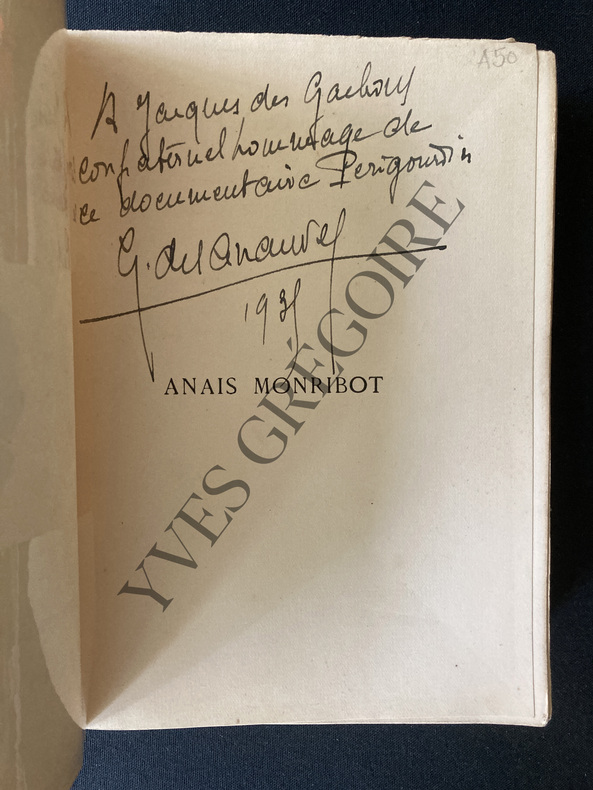 A50
A Jacques des Gachons
confraternel hommage de
ce documentaire Perigourdin
G. de Lanauve
1935
ANAIS MONRIBOT
YVES GRÉGOIRE